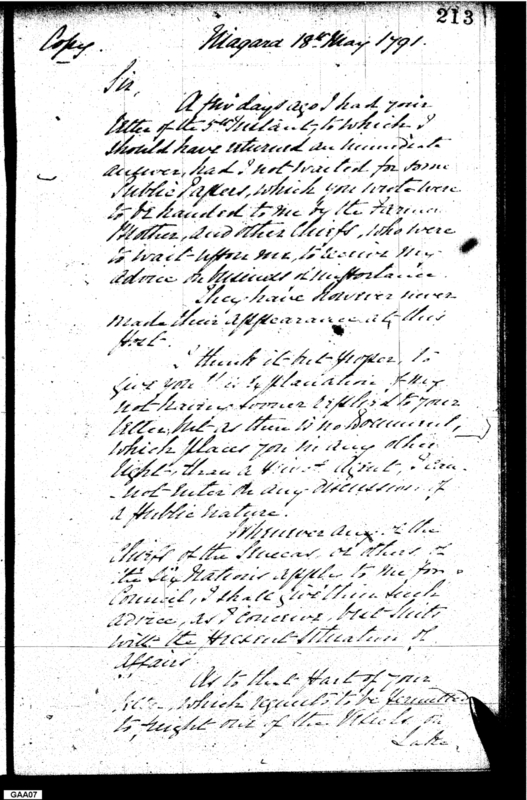 213
Copy.
Niagara 18th May 1791.
Sir,
A few days ago I had your
letter of the 5th Instant, to which I
should have returned an immediate
answer, had I not waited for some
Public Papers, which you wrote were
to be handed to me by the Farmers
Brother, and other Chiefs, who were
to wait upon me, to receive my
advice on business of importance.
They have however never
made their appearance at this
Post.
I think it but proper, to
give you this explanation of my
not having sooner replied to your
letter, but as there is no Document,
which places you in any other
light, than a Agent, I can
not enter on any discussion of
a Public nature.
Whenever any of the
Chiefs of the Senecas, or others of
the Six Nations apply to me for
Council, I shall give them such
advice, as I conceive best suits
with the present situation of
Affairs.
As to that part of your
letter, which requests to be permitted
to freight one of the Vessels on
Lake
GAA07